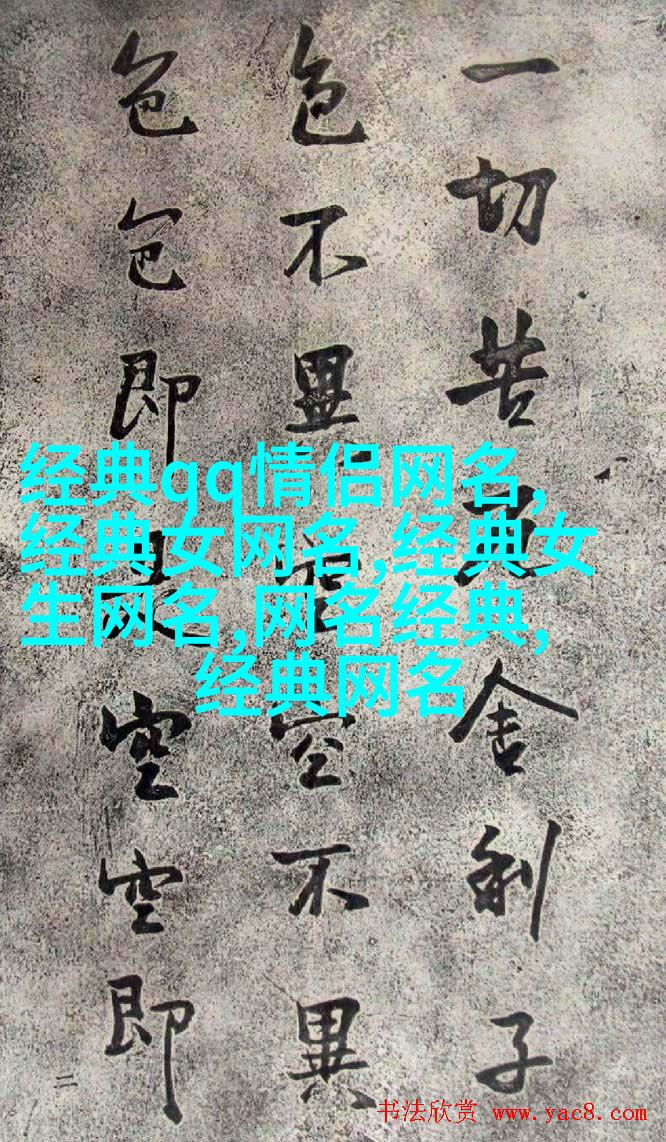 一切苦厄舍利子
色不異空空不異
色色即是空空即
二
经典qq情侣网名,
经典女网名,经典女
生网名,网名经典,
经典网名
书法欣赏 www.yac8.com